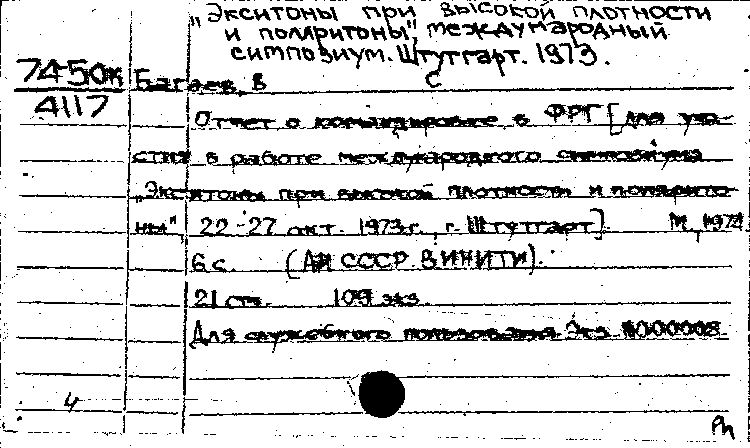 "Экситоны при высокой плотности
и поляритоны", международный
симпозиум. Штутгарт. 1973.
7450к Багаев, В С
4117
Отчет о командировке в ФРГ [для уча-
стия в работе международного симпозиума
"Экситоны при высокой плотности и полярито-
ны", 22-27 окт. 1973г., г. Штутгарт]. М., 1974
6 с. (АН СССР. ВИНИТИ).
21 см. 109 экз.
Для служебного пользования Экз. №000008
4